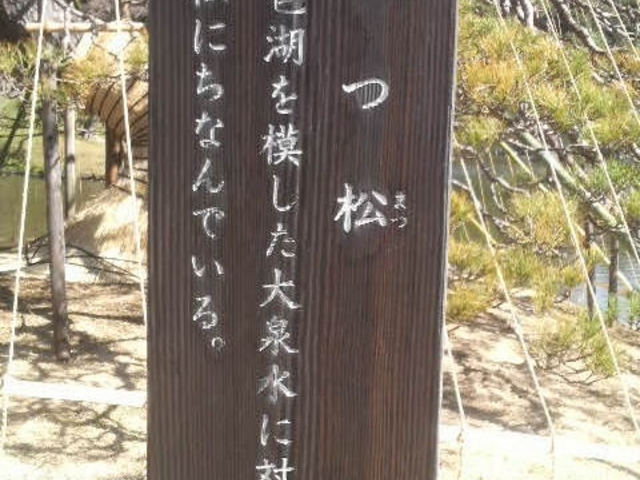 つ松
まつ
湖を模した大泉水に対
にちなんでいる。